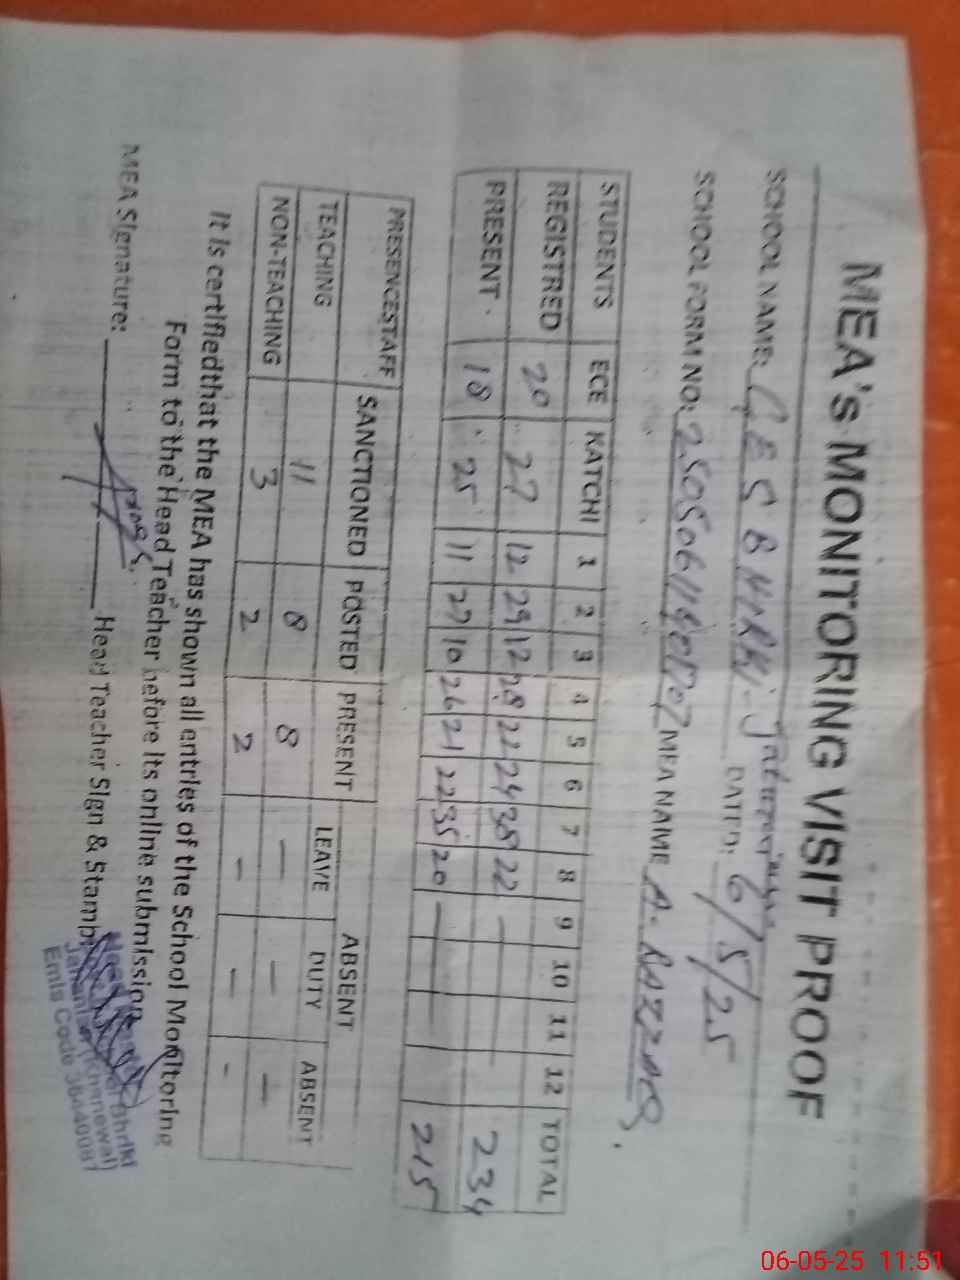 MEA's MONITORING VISIT PROOF
SCHOOL NAME: GES BHIRKI Jahanian DATED: 6/5/25
SCHOOL FORM NO: MEA NAME A. RAZZAQ.
STUDENTS ECE KATCHI 1 2 3 4 5 6 7 8 9 10 11 12 TOTAL
REGISTRED 20 27 12 29 12 28 22 24 38 22 — 234
PRESENT 18 25 11 27 10 26 21 22 35 20 — 215
PRESENCESTAFF SANCTIONED POSTED PRESENT ABSENT
LEAVE DUTY ABSENT
TEACHING 11 8 8 — — —
NON-TEACHING 3 2 2 - - -
It is certifiedthat the MEA has shown all entries of the School Monitoring
Form to the Head Teacher before its online submission.
MEA Signature: Head Teacher Sign & Stamp:
Bhriki
Jahanian (Khanewal)
Emis Code
06-05-25 11:51